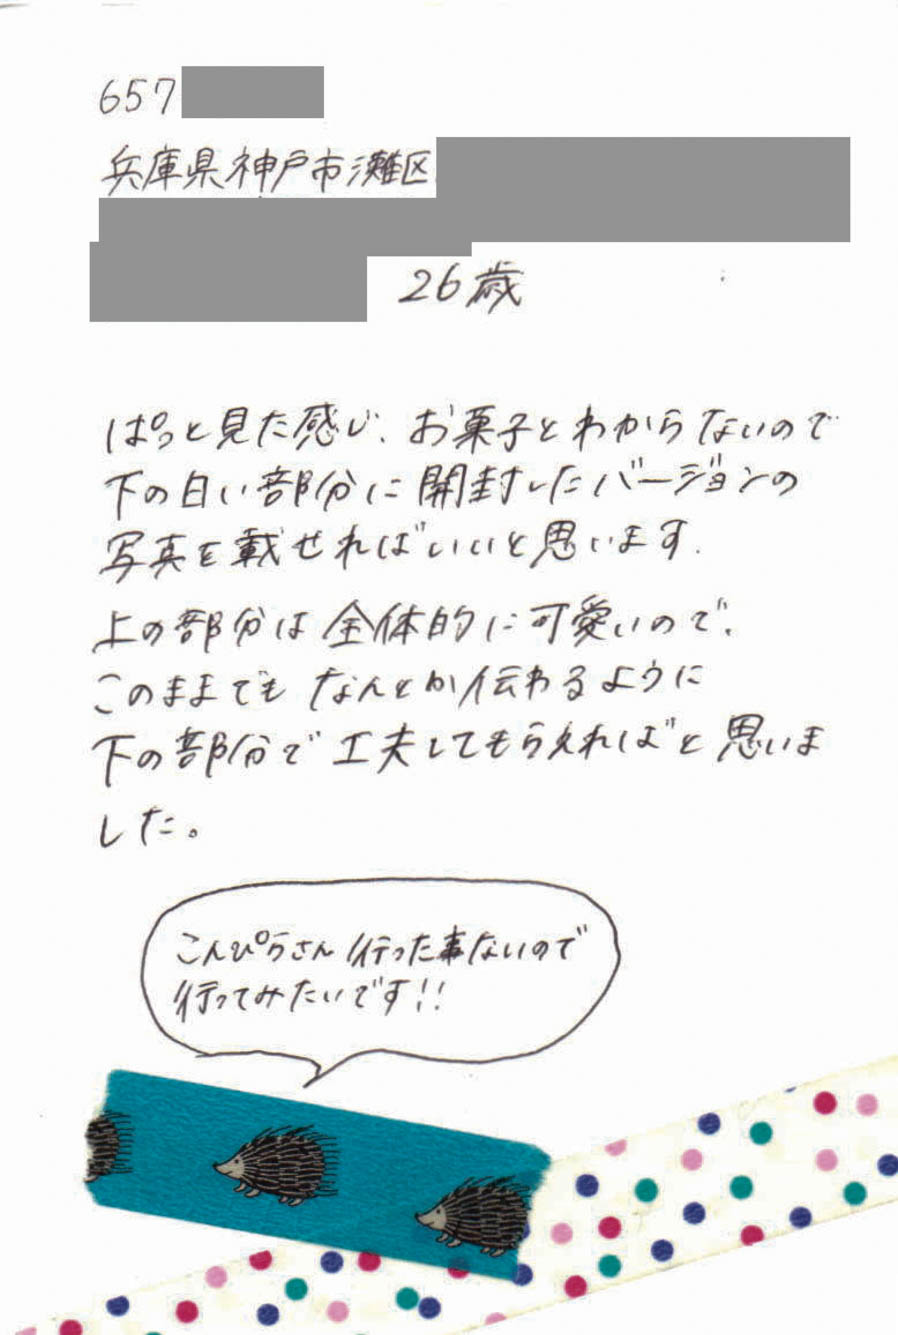 657
兵庫県神戸市灘区
26歳
ぱっと見た感じ、お菓子とわからないので
下の白い部分に開封したバージョンの
写真を載せればいいと思います.
上の部分は全体的に可愛いので、
このままでもなんとか伝わるように
下の部分で工夫してもらえればと思いま
した。
こんぴらさん行った事ないので
行ってみたいです!!